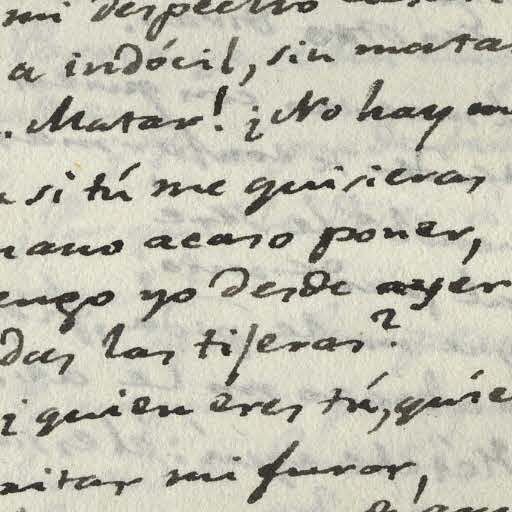 mi despecho
a indócil, sin matar
Matar! ¡No hay
si tú me quisieras
mano acaso poner,
tengo yo desde ayer
das las tijeras?
¿quien eres tú, quíe
mi furor,